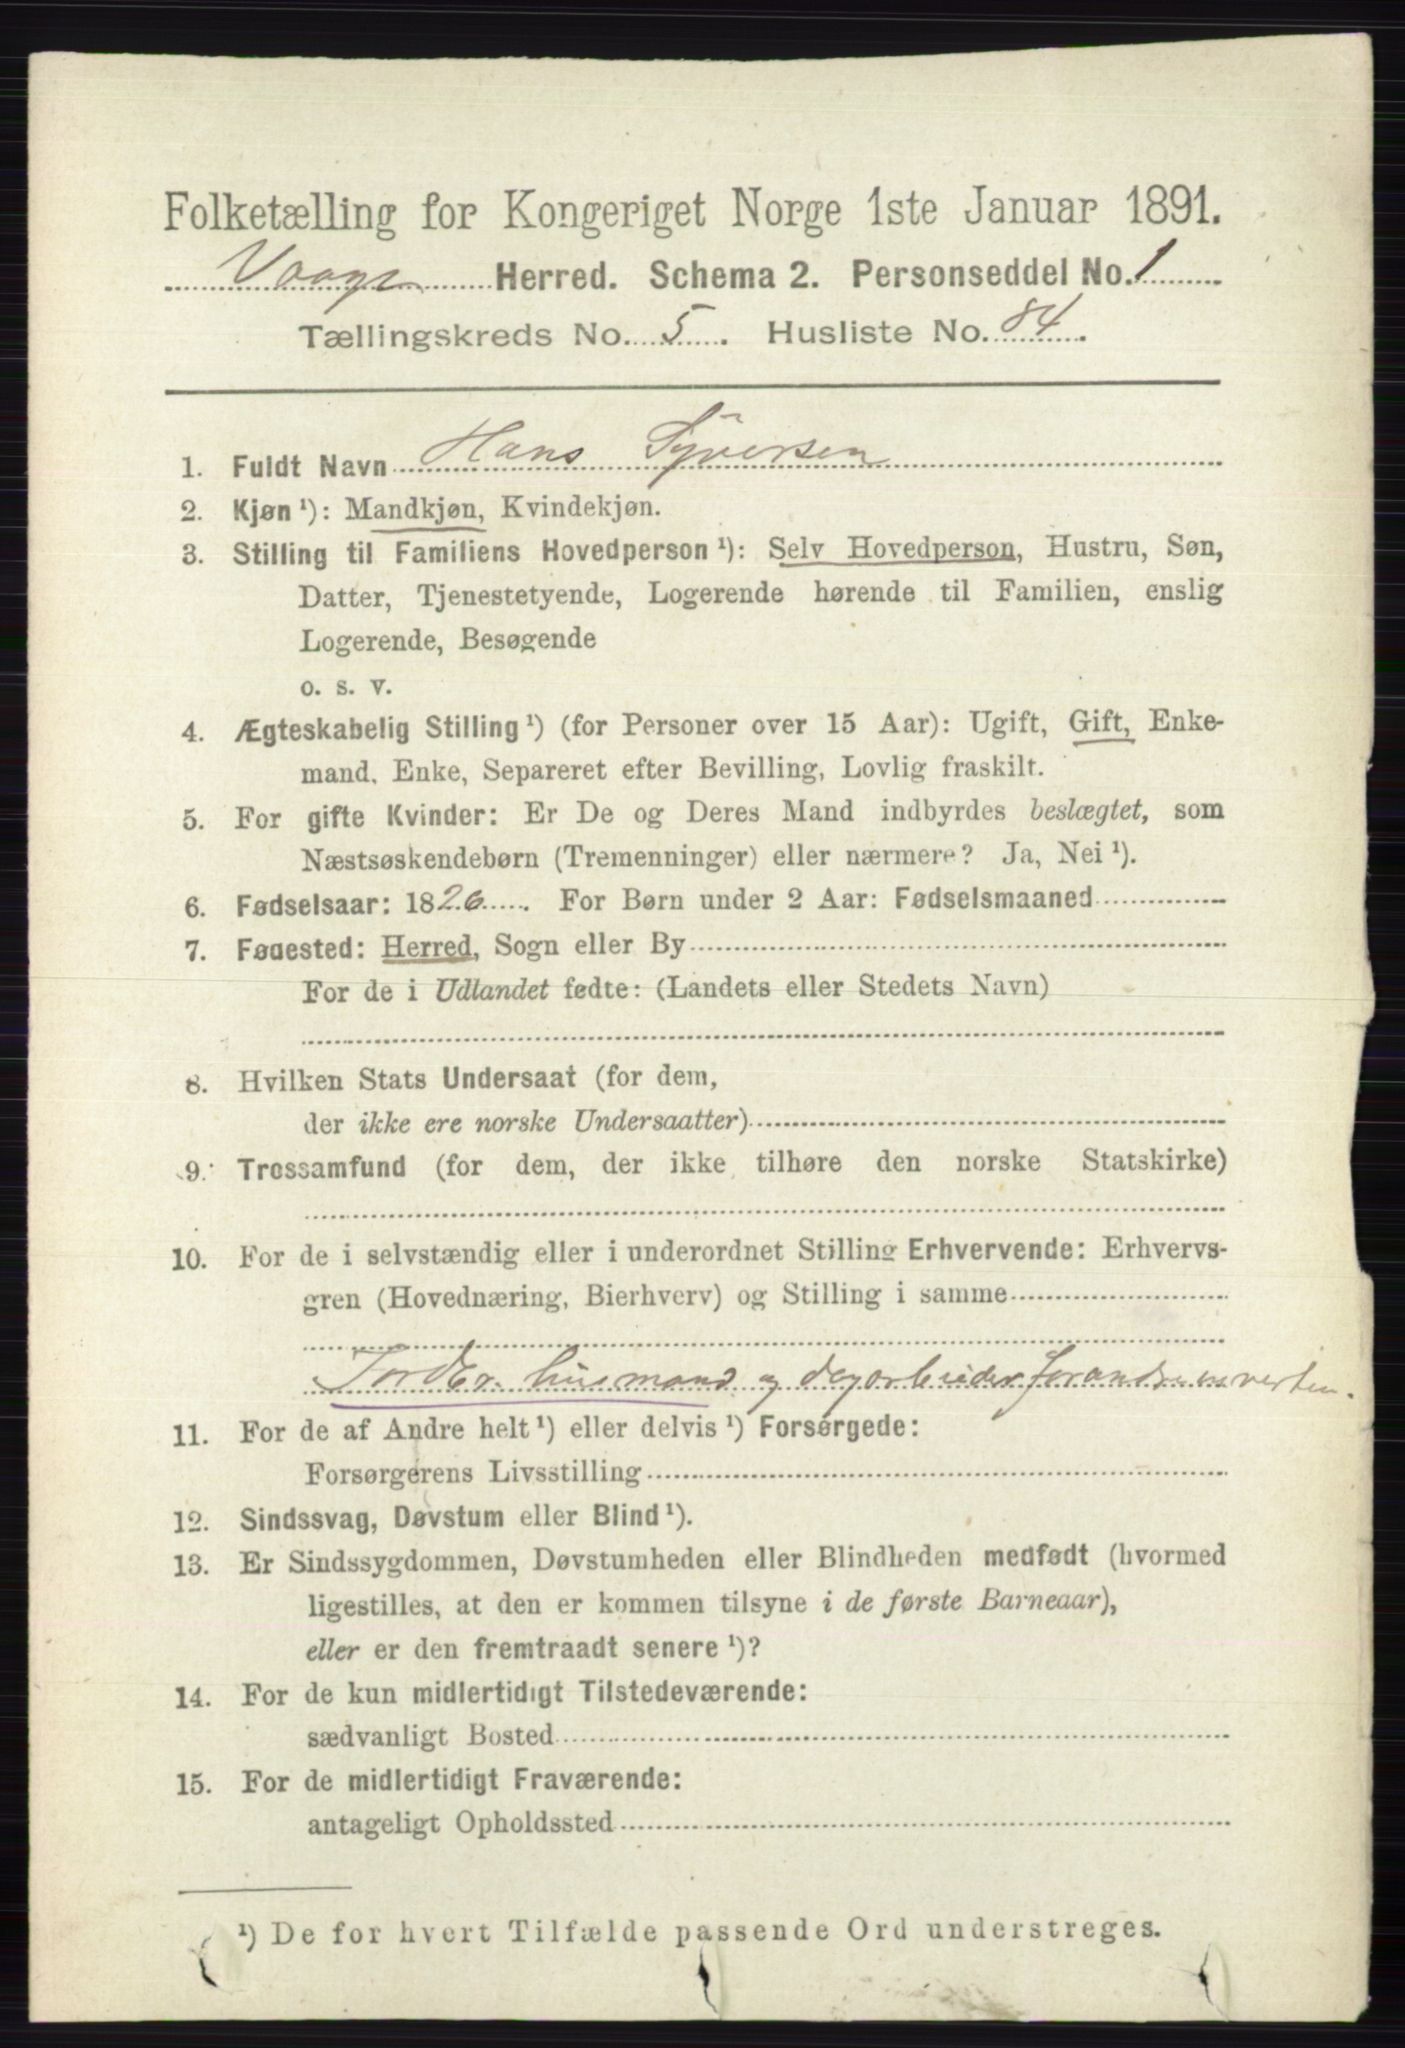 Folketælling for Kongeriget Norge 1ste Januar 1891.
Vaage Herred. Schema 2. Personseddel No. 1
Tællingskreds No. 5. Husliste No. 84.
1. Fuldt Navn Hans Syversen
2. Kjøn ¹): Mandkjøn, Kvindekjøn.
3. Stilling til Familiens Hovedperson ¹): Selv Hovedperson, Hustru, Søn,
Datter, Tjenestetyende, Logerende hørende til Familien, enslig
Logerende, Besøgende
o. s. v.
4. Ægteskabelig Stilling ¹) (for Personer over 15 Aar): Ugift, Gift, Enke-
mand, Enke, Separeret efter Bevilling, Lovlig fraskilt.
5. For gifte Kvinder: Er De og Deres Mand indbyrdes beslægtet, som
Næstsøskendebørn (Tremenninger) eller nærmere? Ja, Nei ¹).
6. Fødselsaar: 1826. For Børn under 2 Aar: Fødselsmaaned
7. Fødested: Herred, Sogn eller By
For de i Udlandet fødte: (Landets eller Stedets Navn)
8. Hvilken Stats Undersaat (for dem,
der ikke ere norske Undersaatter)
9. Trossamfund (for dem, der ikke tilhøre den norske Statskirke)
10. For de i selvstændig eller i underordnet Stilling Erhvervende: Erhvervs-
gren (Hovednæring, Bierhverv) og Stilling i samme
husmand og dagarbeider for andre
11. For de af Andre helt ¹) eller delvis ¹) Forsørgede:
Forsørgerens Livsstilling
12. Sindssvag, Døvstum eller Blind ¹).
13. Er Sindssygdommen, Døvstumheden eller Blindheden medfødt (hvormed
ligestilles, at den er kommen tilsyne i de første Barneaar),
eller er den fremtraadt senere ¹)?
14. For de kun midlertidigt Tilstedeværende:
sædvanligt Bosted
15. For de midlertidigt Fraværende:
antageligt Opholdssted
¹) De for hvert Tilfælde passende Ord understreges.